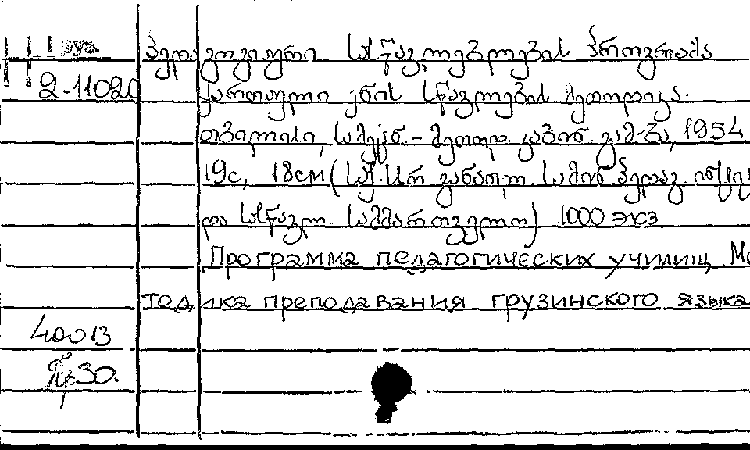 პედაგოგიური სასწავლებლების პროგრამა
2-11020
ქართული ენის სწავლების მეთოდიკა.
თბილისი, სამეცნ.-მეთოდ. კაბინ. გამ-ბა, 1954
19с, 18см (საქ. სსრ განათლ. სამინ. პედაგ.
და სასწავლ. სამმართველო) 1000 экз
Программа педагогических училищ Ме
тодика преподавания грузинского языка
40013
30.